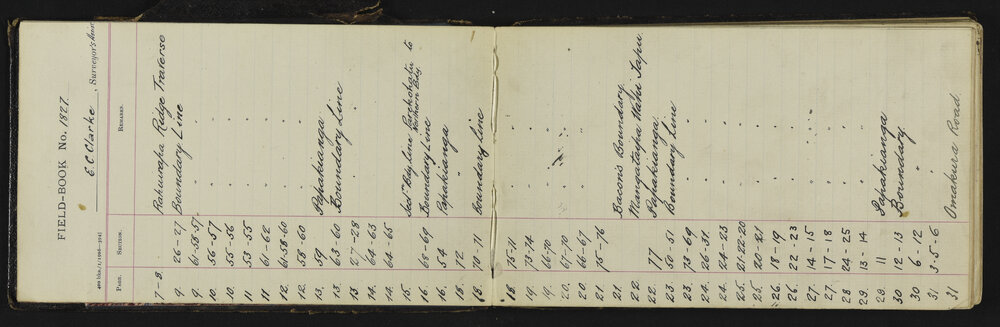 FIELD-BOOK No. 1827.
E C Clarke, Surveyor's Name
PAGE. SECTION. REMARKS.
7-8. Rahuirapa Ridge Traverse
9. 26-27 Boundary Line
9. 61-58-57. "
10. 56-57 "
10. 55-56 "
11 53-55 "
11. 61-62 "
12. 61-58-60 "
12. 58-60 "
13, 59 Papakianga
13, 63-60 Boundary Line
13. 27-28 "
14. 64-63 "
14. 64-65 "
15. Sec Bdy. line to
Northern Bdy
16. 68-69 Boundary Line
16. 54 Papakianga
18. 72 "
18. 70-71 Boundary Line
18. 75-71 "
19. 73-74 "
19. 66-70 "
20. 67-70 "
20 66-67 "
21. 75-76 "
21. Bacons Boundary
22. Mangataipa Wahi Tapu
22. 77 Papakianga.
23. 50-51 Boundary Line
23. 73-69 "
24. 26-31. "
24. 24-23 "
25. 21-22-20 "
25. 20-21 "
26. 18-19 "
26. 22-23 "
27. 14-15 "
27. 17-18 "
28 24-25 "
29. 13-14 "
28. 11 Papakianga
30 12-13 Boundary
30 6-12 "
31 3-5-6 "
31 Omahura Road.